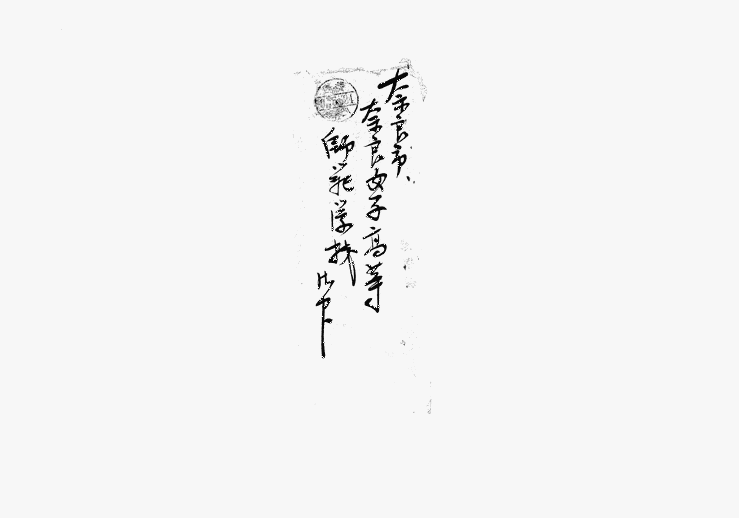 奈良市、
奈良女子高等
師範学校
御中